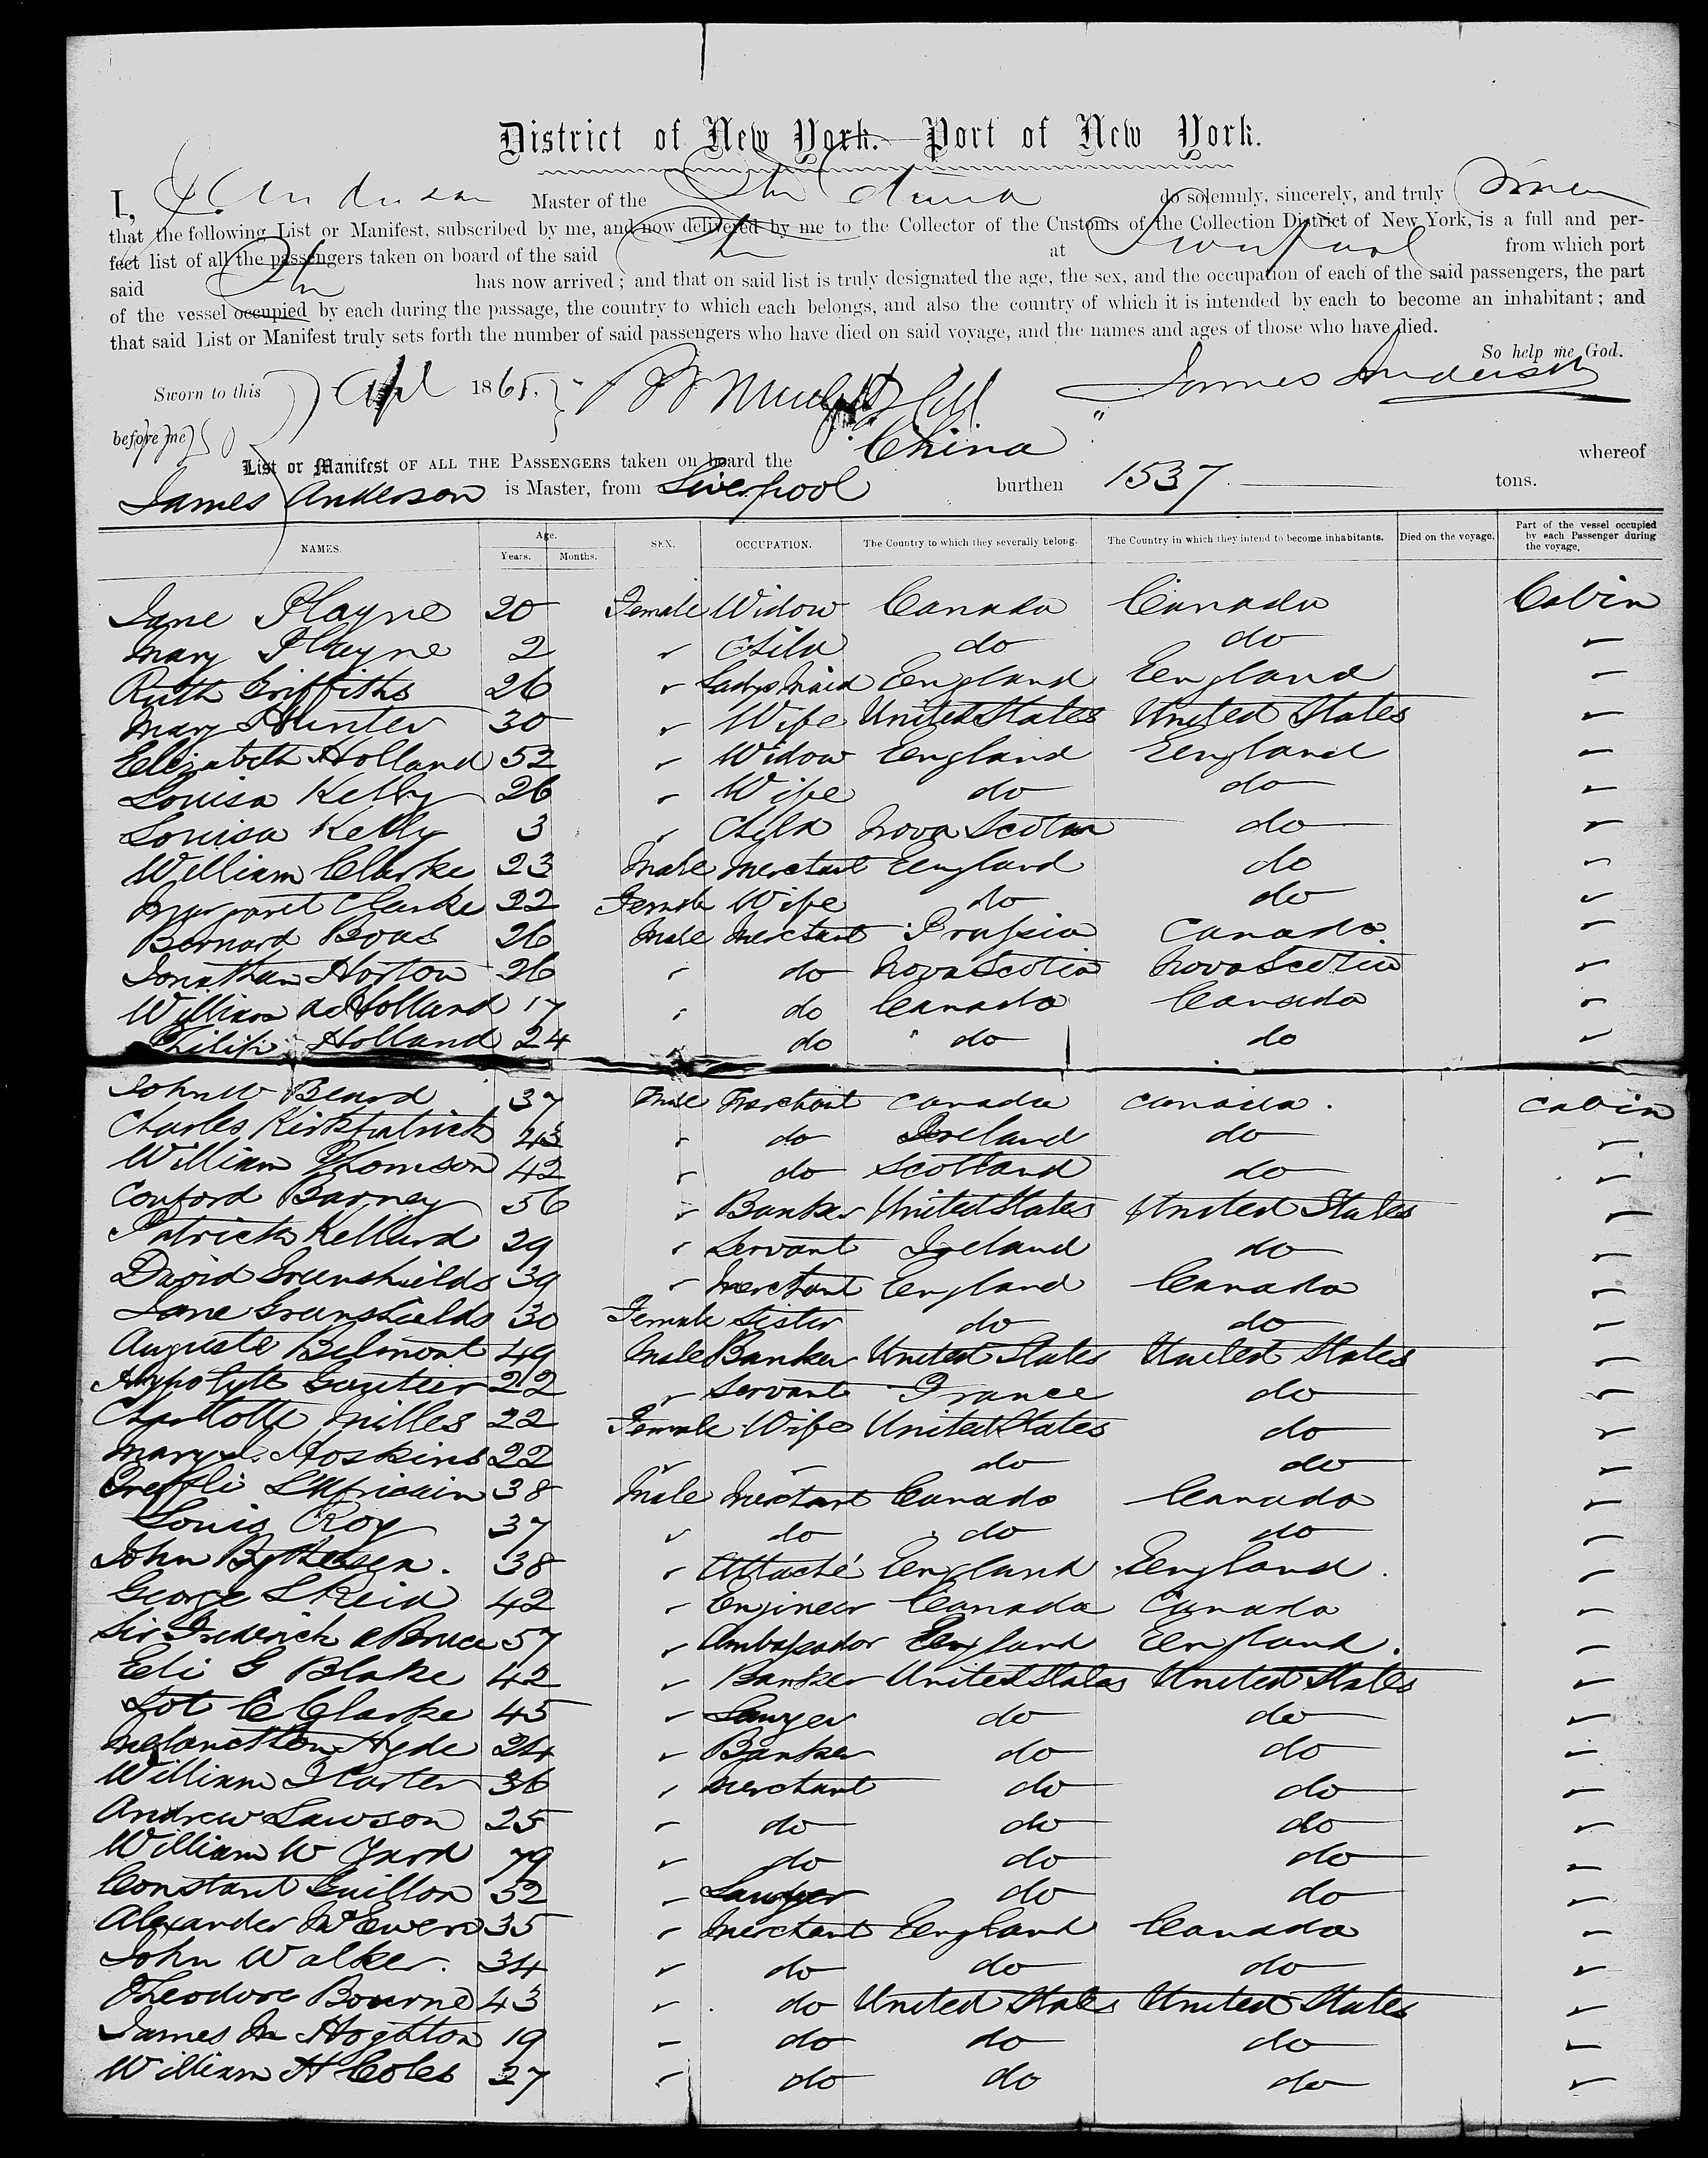 District of New York. Port of New York.
I, J. Anderson Master of the Str China do solemnly, sincerely, and truly Swear
that the following List or Manifest, subscribed by me, and now delivered by me to the Collector of the Customs of the Collection District of New York, is a full and per-
fect list of all the passengers taken on board of the said Str at Liverpool from which port
said Str has now arrived; and that on said list is truly designated the age, the sex, and the occupation of each of the said passengers, the part
of the vessel occupied by each during the passage, the country to which each belongs, and also the country of which it is intended by each to become an inhabitant; and
that said List or Manifest truly sets forth the number of said passengers who have died on said voyage, and the names and ages of those who have died.
So help me God.
Sworn to this Apl 1865. James Anderson
before me
List or Manifest OF ALL THE PASSENGERS taken on board the "China" whereof
James Anderson is Master, from Liverpool burthen 1537 tons.
NAMES. Age. Years. Months. SEX. OCCUPATION. The Country to which they severally belong. The Country in which they intend to become inhabitants. Died on the voyage. Part of the vessel occupied by each Passenger during the voyage.
Jane Playne 20 Female Widow Canada Canada Cabin
Mary Playne 2 " Child do do "
Ruth Griffiths 26 " Ladys Maid England England "
Mary Hunter 30 " Wife United States United States "
Elizabeth Holland 52 " Widow England England "
Louisa Kelly 26 " Wife do do "
Louisa Kelly 3 " Child Nova Scotia do "
William Clarke 23 Male Merchant England do "
Margaret Clarke 22 Female Wife do do "
Bernard Boas 26 Male Merchant Prussia Canada "
Jonathan Horton 26 " do Nova Scotia Nova Scotia "
William Holland 17 " do Canada Canada "
Philip Holland 24 do do do "
John W Beard 37 Male Merchant Canada Canada. Cabin
Charles Kirkpatrick 43 " do Ireland do "
William Thomson 42 " do Scotland do "
Conford Barney 56 " Banker United States United States "
Patrick Kellard 29 " Servant Ireland do "
David Greenshields 39 " Merchant England Canada "
Jane Greenshields 30 Female Sister do do "
Auguste Belmont 49 Male Banker United States United States "
Hypolyte Gautier 22 " Servant France do "
Charlotte Milles 22 Female Wife United States do "
Mary Hoskins 22 " " do do "
L'Africain 38 Male Merchant Canada Canada "
Louis Roy 37 " do do do "
John Bythesea. 38 " Attaché England England. "
George L Reid 42 " Engineer Canada Canada "
Sir Frederick Bruce 57 " Ambassador England England. "
Eli G Blake 42 " Banker United States United States "
Lot C Clarke 45 " Lawyer do do "
Melancthon Hyde 24 " Banker do do "
William J Carter 36 " Merchant do do "
Andrew Lawson 25 " do do do "
William W Yard 79 " do do do "
Constant Guillou 52 " Lawyer do do "
Alexander McEwen 35 " Merchant England Canada "
John Walker. 34 " do do do "
Theodore Bourne 43 " do United States United States "
James M Hoghton 19 " do do do "
William H Coles 27 " do do do "